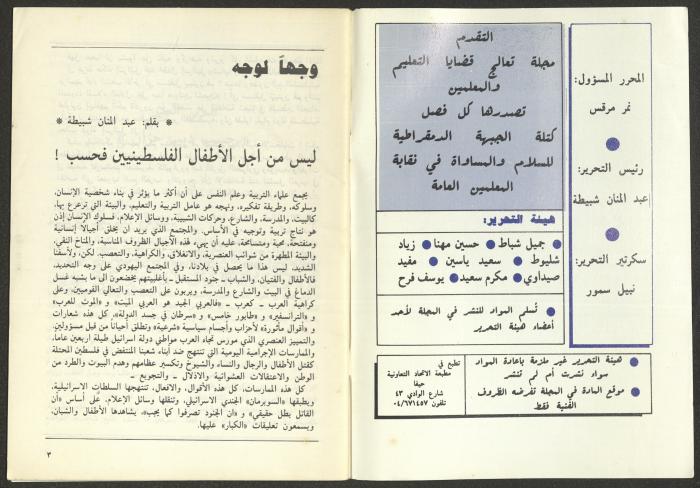 التقدم
مجلة تعالج قضايا التعليم
والمعلمين
تصدرها كل فصل
كتلة الجبهة الدمقراطية
للسلام والمساواة في نقابة
المعلمين العامة
المحرر المسؤول:
نمر مرقس
رئيس التحرير:
عبد المنان شبيطة
سكرتير التحرير:
نبيل سمور
هيئة التحرير:
● جميل شباط ● حسين مهنا ● زياد
شليوط ● سعيد ياسين ● مفيد
صيداوي ● مكرم سعيد ● يوسف فرح
● تُسلم المواد للنشر في المجلة لأحد
أعضاء هيئة التحرير
● هيئة التحرير غير ملزمة باعادة المواد
سواء نشرت أم لم تنشر
● موقع المادة في المجلة تفرضه الظروف
الفنية فقط
تطبع في
مطبعة الاتحاد التعاونية
حيفا
شارع الوادي ٤٣
تلفون ٠٤/٦٧١٤٥٧
وجهاً لوجه
* بقلم: عبد المنان شبيطة *
ليس من أجل الأطفال الفلسطينيين فحسب !
يجمع علماء التربية وعلم النفس على أن أكثر ما يؤثر في بناء شخصية الإنسان،
وسلوكه، وطريقة تفكيره، ونهجه هو عامل التربية والتعليم، والبيئة التي ترعرع بها،
كالبيت، والمدرسة، والشارع، وحركات الشبيبة، ووسائل الإعلام. فسلوك الإنسان إذن
هو نتاج تربية وتوجيه في الأساس. والمجتمع الذي يريد ان يخلق أجيالا إنسانية
ومنفتحة، محبة ومتسامحة، عليه أن يهيء لهذه الأجيال الظروف المناسبة، والمناخ النقي،
والبيئة المطهرة من شوائب العنصرية، والانغلاق، والكراهية، والتعصب. لكن، ولأسفنا
الشديد، ليس هذا ما يحصل في بلادنا، وفي المجتمع اليهودي على وجه التحديد.
فالأطفال والفتيان، والشباب ــ جنود المستقبل ــ بأغلبيتهم يخضعون الى ما يشبه غسل
الدماغ في البيت والشارع والمدرسة، ويربون على التعصب والتعالي القوميين، وعلى
كراهية العرب ــ كعرب ــ «فالعربي الجيد هو العربي الميت» و «الموت للعرب»
و «الترانسفير» و «طابور خامس» و «سرطان في جسد الدولة»، كل هذه شعارات
و «أقوال مأثورة» لأحزاب وأجسام سياسية «شرعية» وتطلق أحيانا من قبل مسؤولين.
والتمييز العنصري الذي مورس تجاه العرب مواطني دولة اسرائيل طيلة اربعين عاما،
والممارسات الإجرامية اليومية التي تنتهج ضد أبناء شعبنا المنتفض في فلسطين المحتلة
كقتل الأطفال والرجال والنساء والشيوخ وتكسير عظامهم وهدم البيوت والطرد من
الوطن والاعتقالات العشوائية والاذلال ــ والتجويع ــ
كل هذه الممارسات، كل هذه الاقوال، والافعال، تنتهجها السلطات الاسرائيلية،
ويطبقها «السوبرمان» الجندي الاسرائيلي، وتنقلها وسائل الإعلام، على أساس «أن
القاتل بطل حقيقي» و «ان الجنود تصرفوا كما يجب»، يشاهدها الأطفال والشبان،
ويسمعون تعليقات «الكبار» عليها.
٣